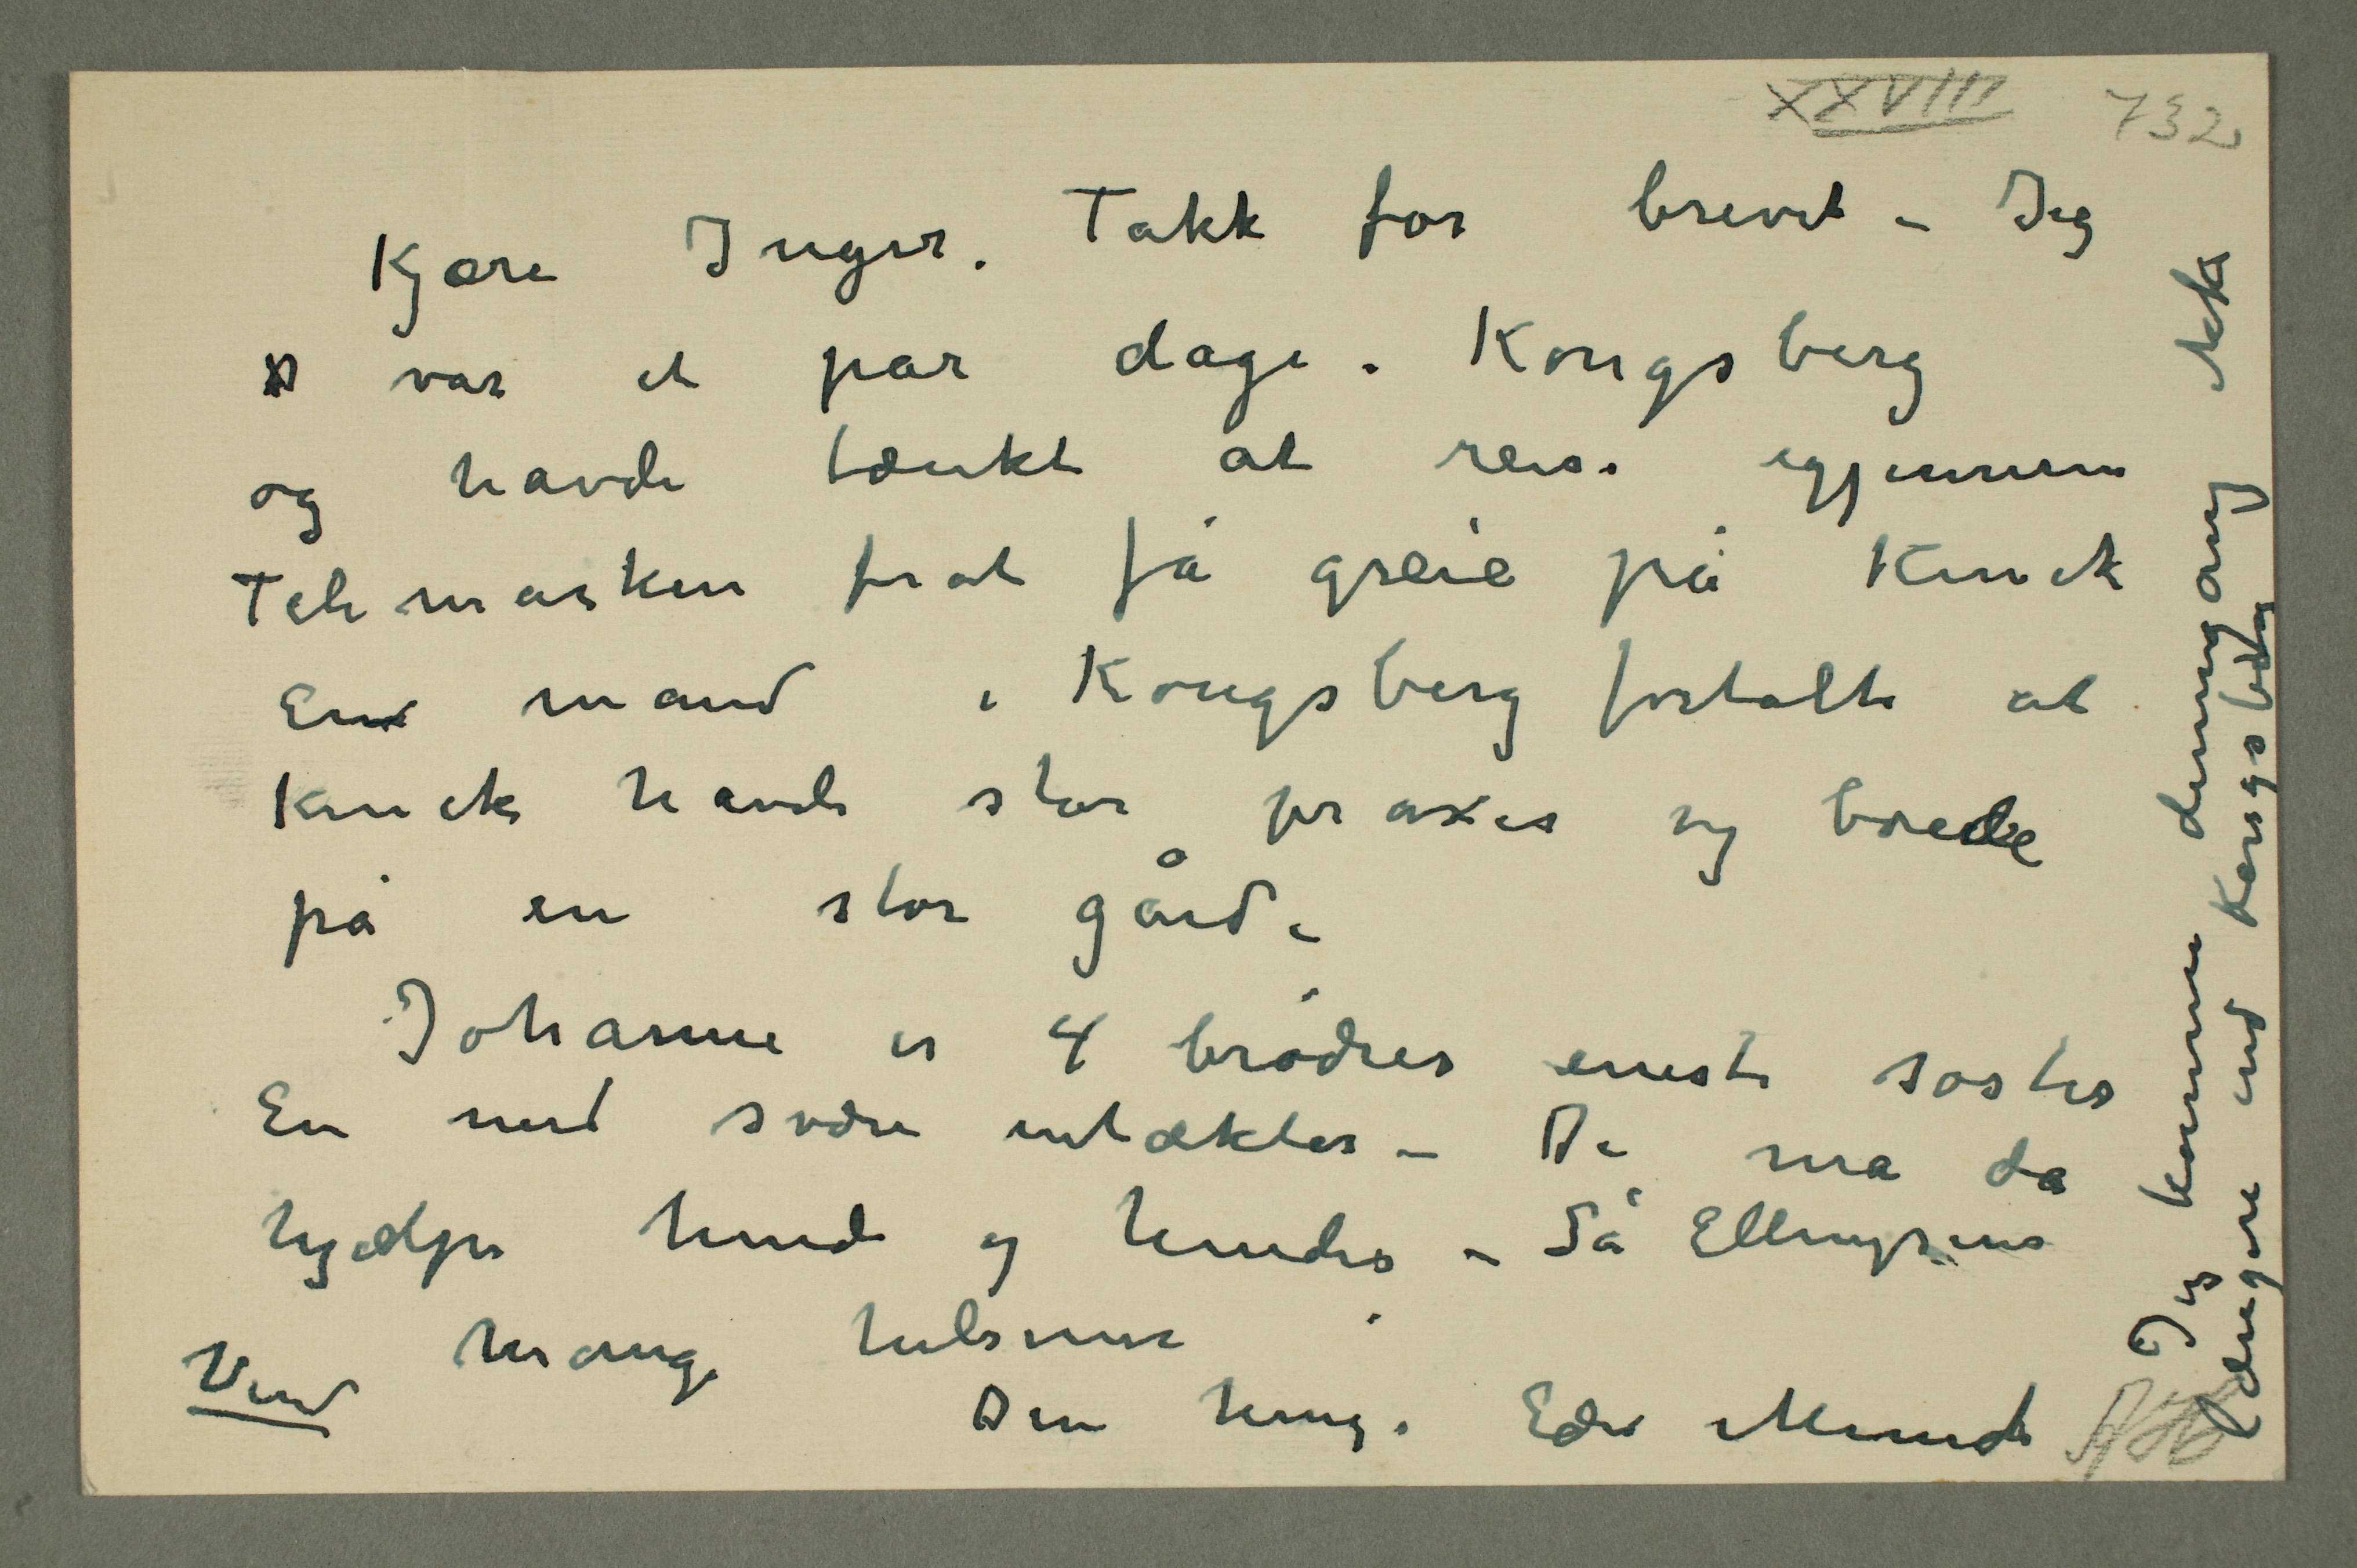 XXVIII 732
Kjære Inger. Takk for brevet – Jeg
var et par dage i Kongsberg
og havde tænkt at reise igjennem
Telemarken forat få greie på Kinck
En mand i Kongsberg fortalte at
Kinck havde stor praxis og boede
på en stor gård. –
Johanne er 4 brødres eneste søster
En med svære intækter – De må da
hjælpe hende og hendes – Så Ellingsens
Mange hilsener
Vend
Din heng. Edv Munch
Jeg kommer dengang ikke
længere end Kongsberg